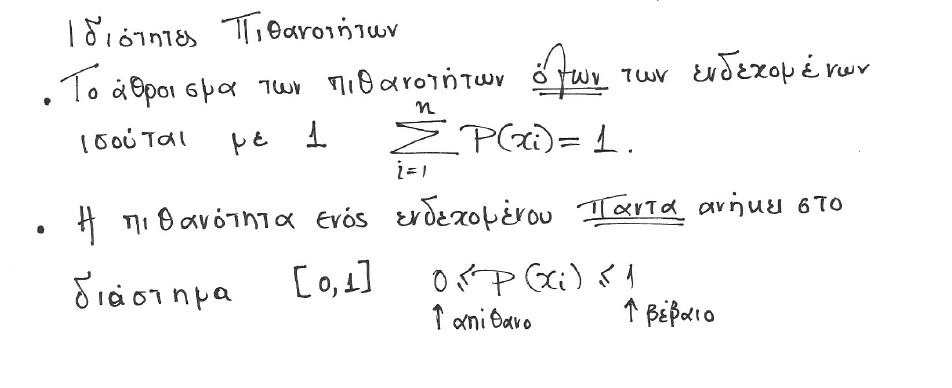 Ιδιότητες Πιθανοτήτων
• Το άθροισμα των πιθανοτήτων όλων των ενδεχομένων
ισούται με 1 ∑ᵢ₌₁ⁿ P(xi) = 1.
• Η πιθανότητα ενός ενδεχομένου πάντα ανήκει στο
διάστημα [0,1] 0 ≤ P(xi) ≤ 1
↑ απίθανο ↑ βέβαιο